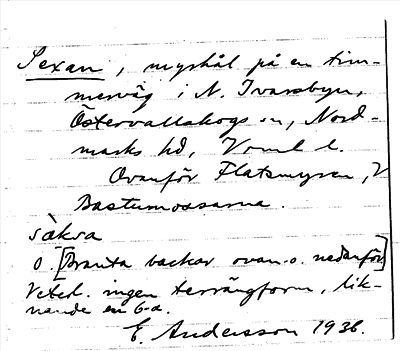 Sexan, myrhål på en tim-
merväg i N. Ivarsbyn,
Östervallskogs sn, Nord-
marks hd, Vrml l.
Ovanför Flatsmyren, V
Bastumossarna.
säksa
o. [Branta backar ovan o. nedanför]
Veterl. ingen terrängform, lik-
nande en 6-a.
E. Andersson 1936.